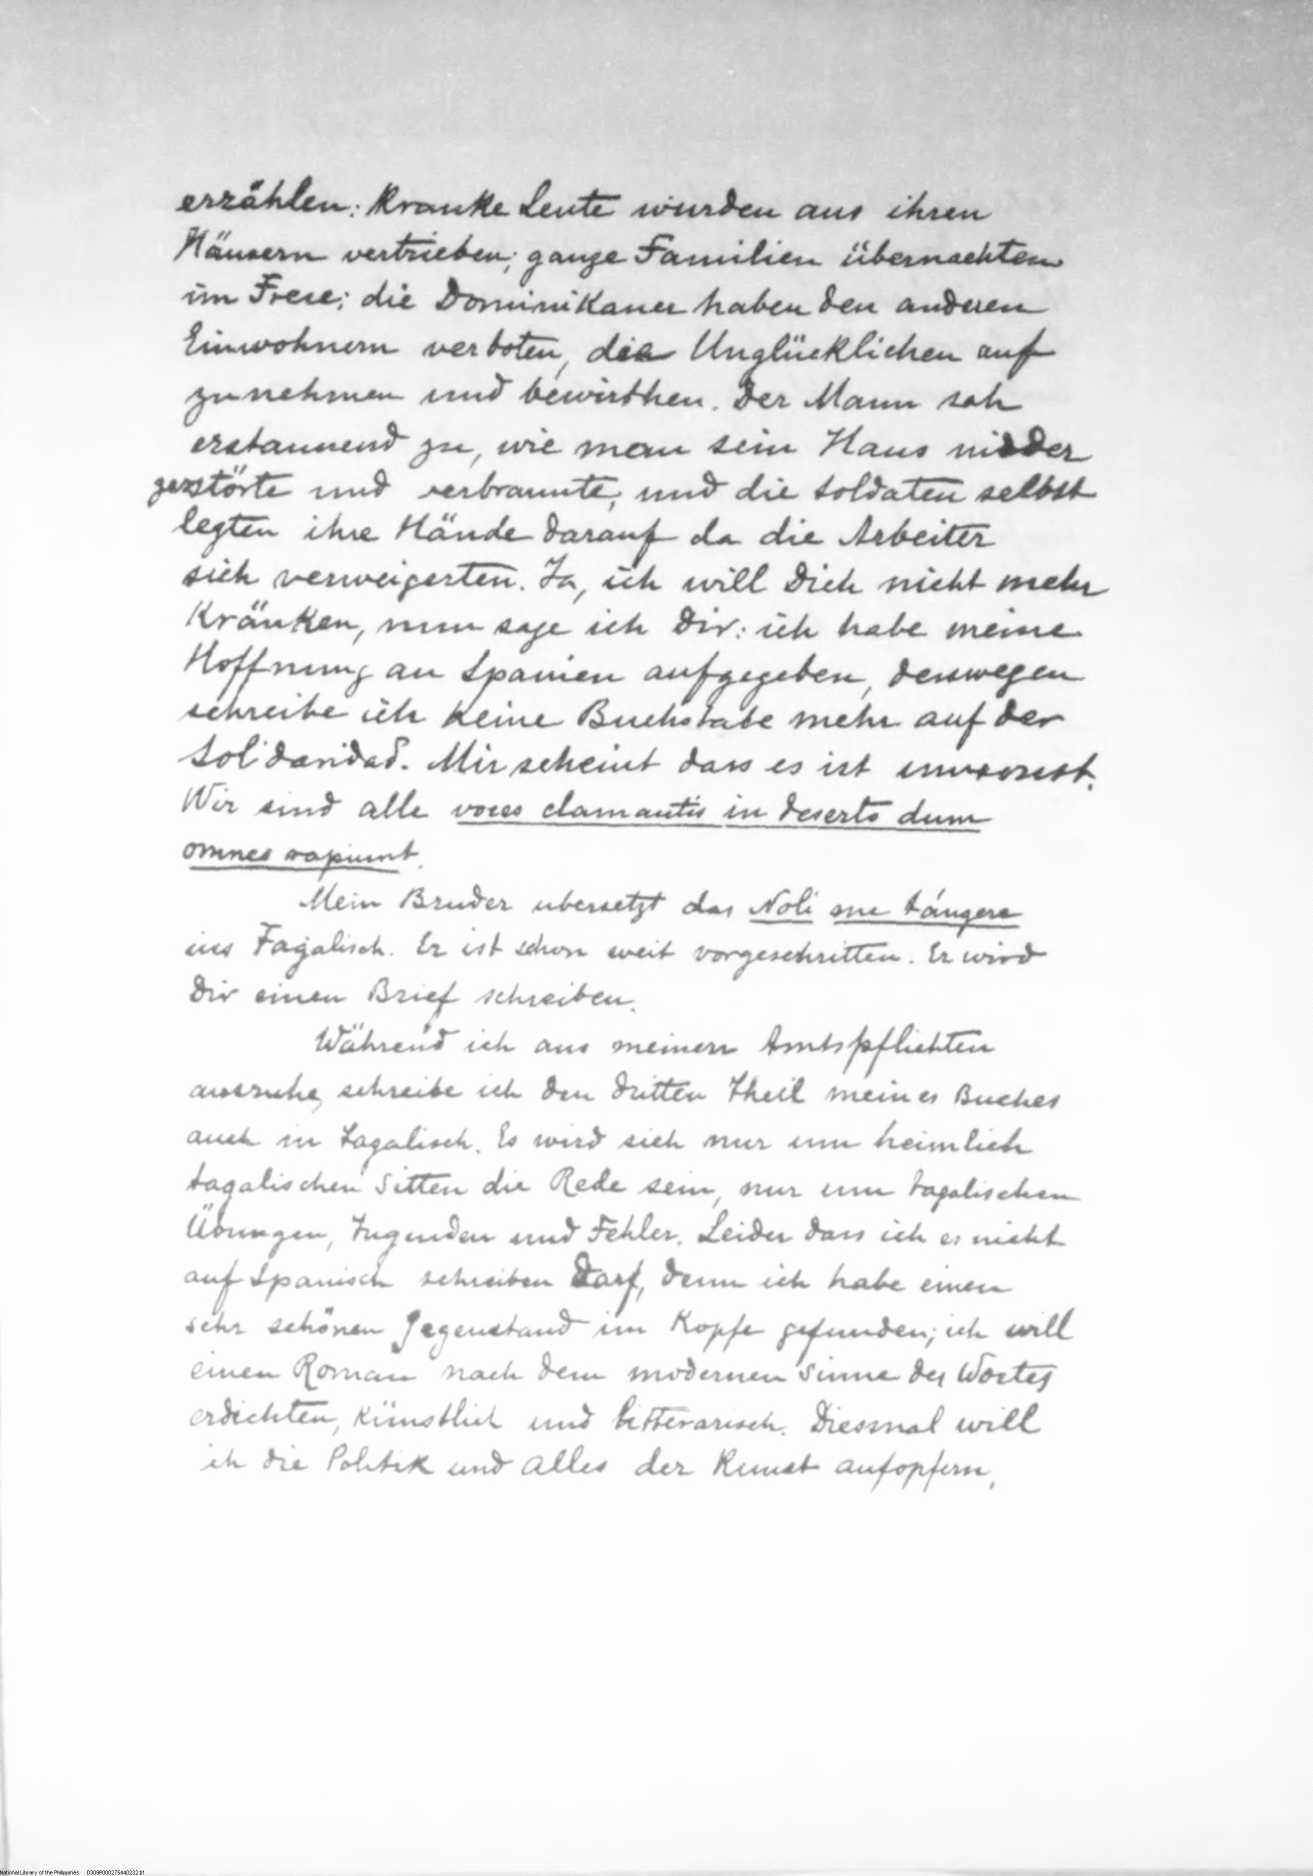 erzählen: Kranke Leute wurden aus ihren
Häusern vertrieben; ganze Familien übernachten
im Freie; die Dominikaner haben den anderen
Einwohnern verboten, die Unglücklichen auf
zunehmen und bewirthen. Der Mann sah
erstaunend zu, wie man sein Haus nieder
zerstörte und verbrannte, und die Soldaten selbst
legten ihre Hände darauf da die Arbeiter
sich verweigerten. Ja, ich will Dich nicht mehr
Kränken, nun sage ich Dir: ich habe meine
Hoffnung an Spanien aufgegeben, deswegen
schreibe ich keine Buchstabe mehr auf der
Solidaridad. Mir scheint dass es ist umsonst.
Wir sind alle voces clamantis in deserto dum
omnes rapiunt.
Mein Bruder ubersetzt das Noli me tángere
ins Tagalisch. Er ist schon weit vorgeschritten. Er wird
Dir einen Brief schreiben.
Während ich aus meinen Amtspflichten
ausruhe, schreibe ich den dritten Theil meines Buches
auch in Tagalisch. Es wird sich nur um heimlich
tagalischen Sitten die Rede sein, nur um tagalischen
Übungen, Tugenden und Fehler. Leider dass ich es nicht
auf Spanisch schreiben Darf, denn ich habe einen
sehr schönen Gegenstand im Kopfe gefunden; ich will
einen Roman nach dem modernen Sinne des Wortes
erdichten, künstlich und litterarisch. Diesmal will
ich die Politik und alles der Kunst aufopfern,
National Library of the Philippines